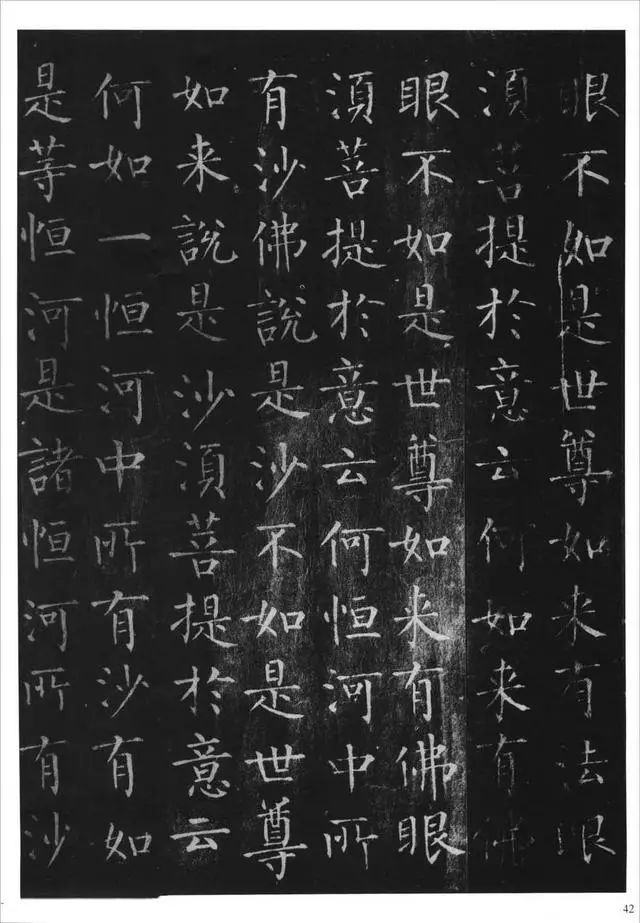 眼不如是世尊如来有法眼
湏菩提於意云何如来有佛
眼不如是世尊如来有佛眼
湏菩提於意云何恒河中所
有沙佛說是沙不如是世尊
如来說是沙湏菩提於意云
何如一恒河中所有沙有如
是等恒河是諸恒河所有沙
42